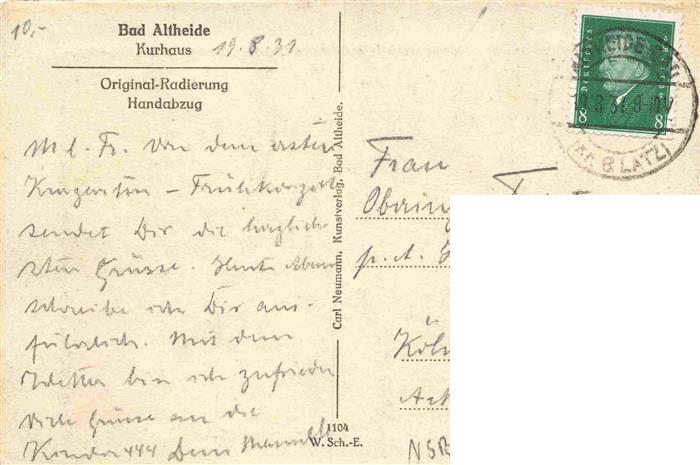 10,-
Bad Altheide
Kurhaus 19.8.31
Original-Radierung
Handabzug
M l. Fr. Von dem ersten
Kurgarten – Frühkonzert
sendet Dir die herzlich-
sten Grüsse. Heute Abend
schreibe ich Dir aus-
führlich. Mit dem
Wetter bin ich zufrieden
Viele Grüsse an die
Kinder Dein
Carl Neumann, Kunstverlag, Bad Altheide.
1104
W. Sch.-E.
8 8
8.31.9-10
(KR GLATZ)
Frau
Obering
p. A.
Köln